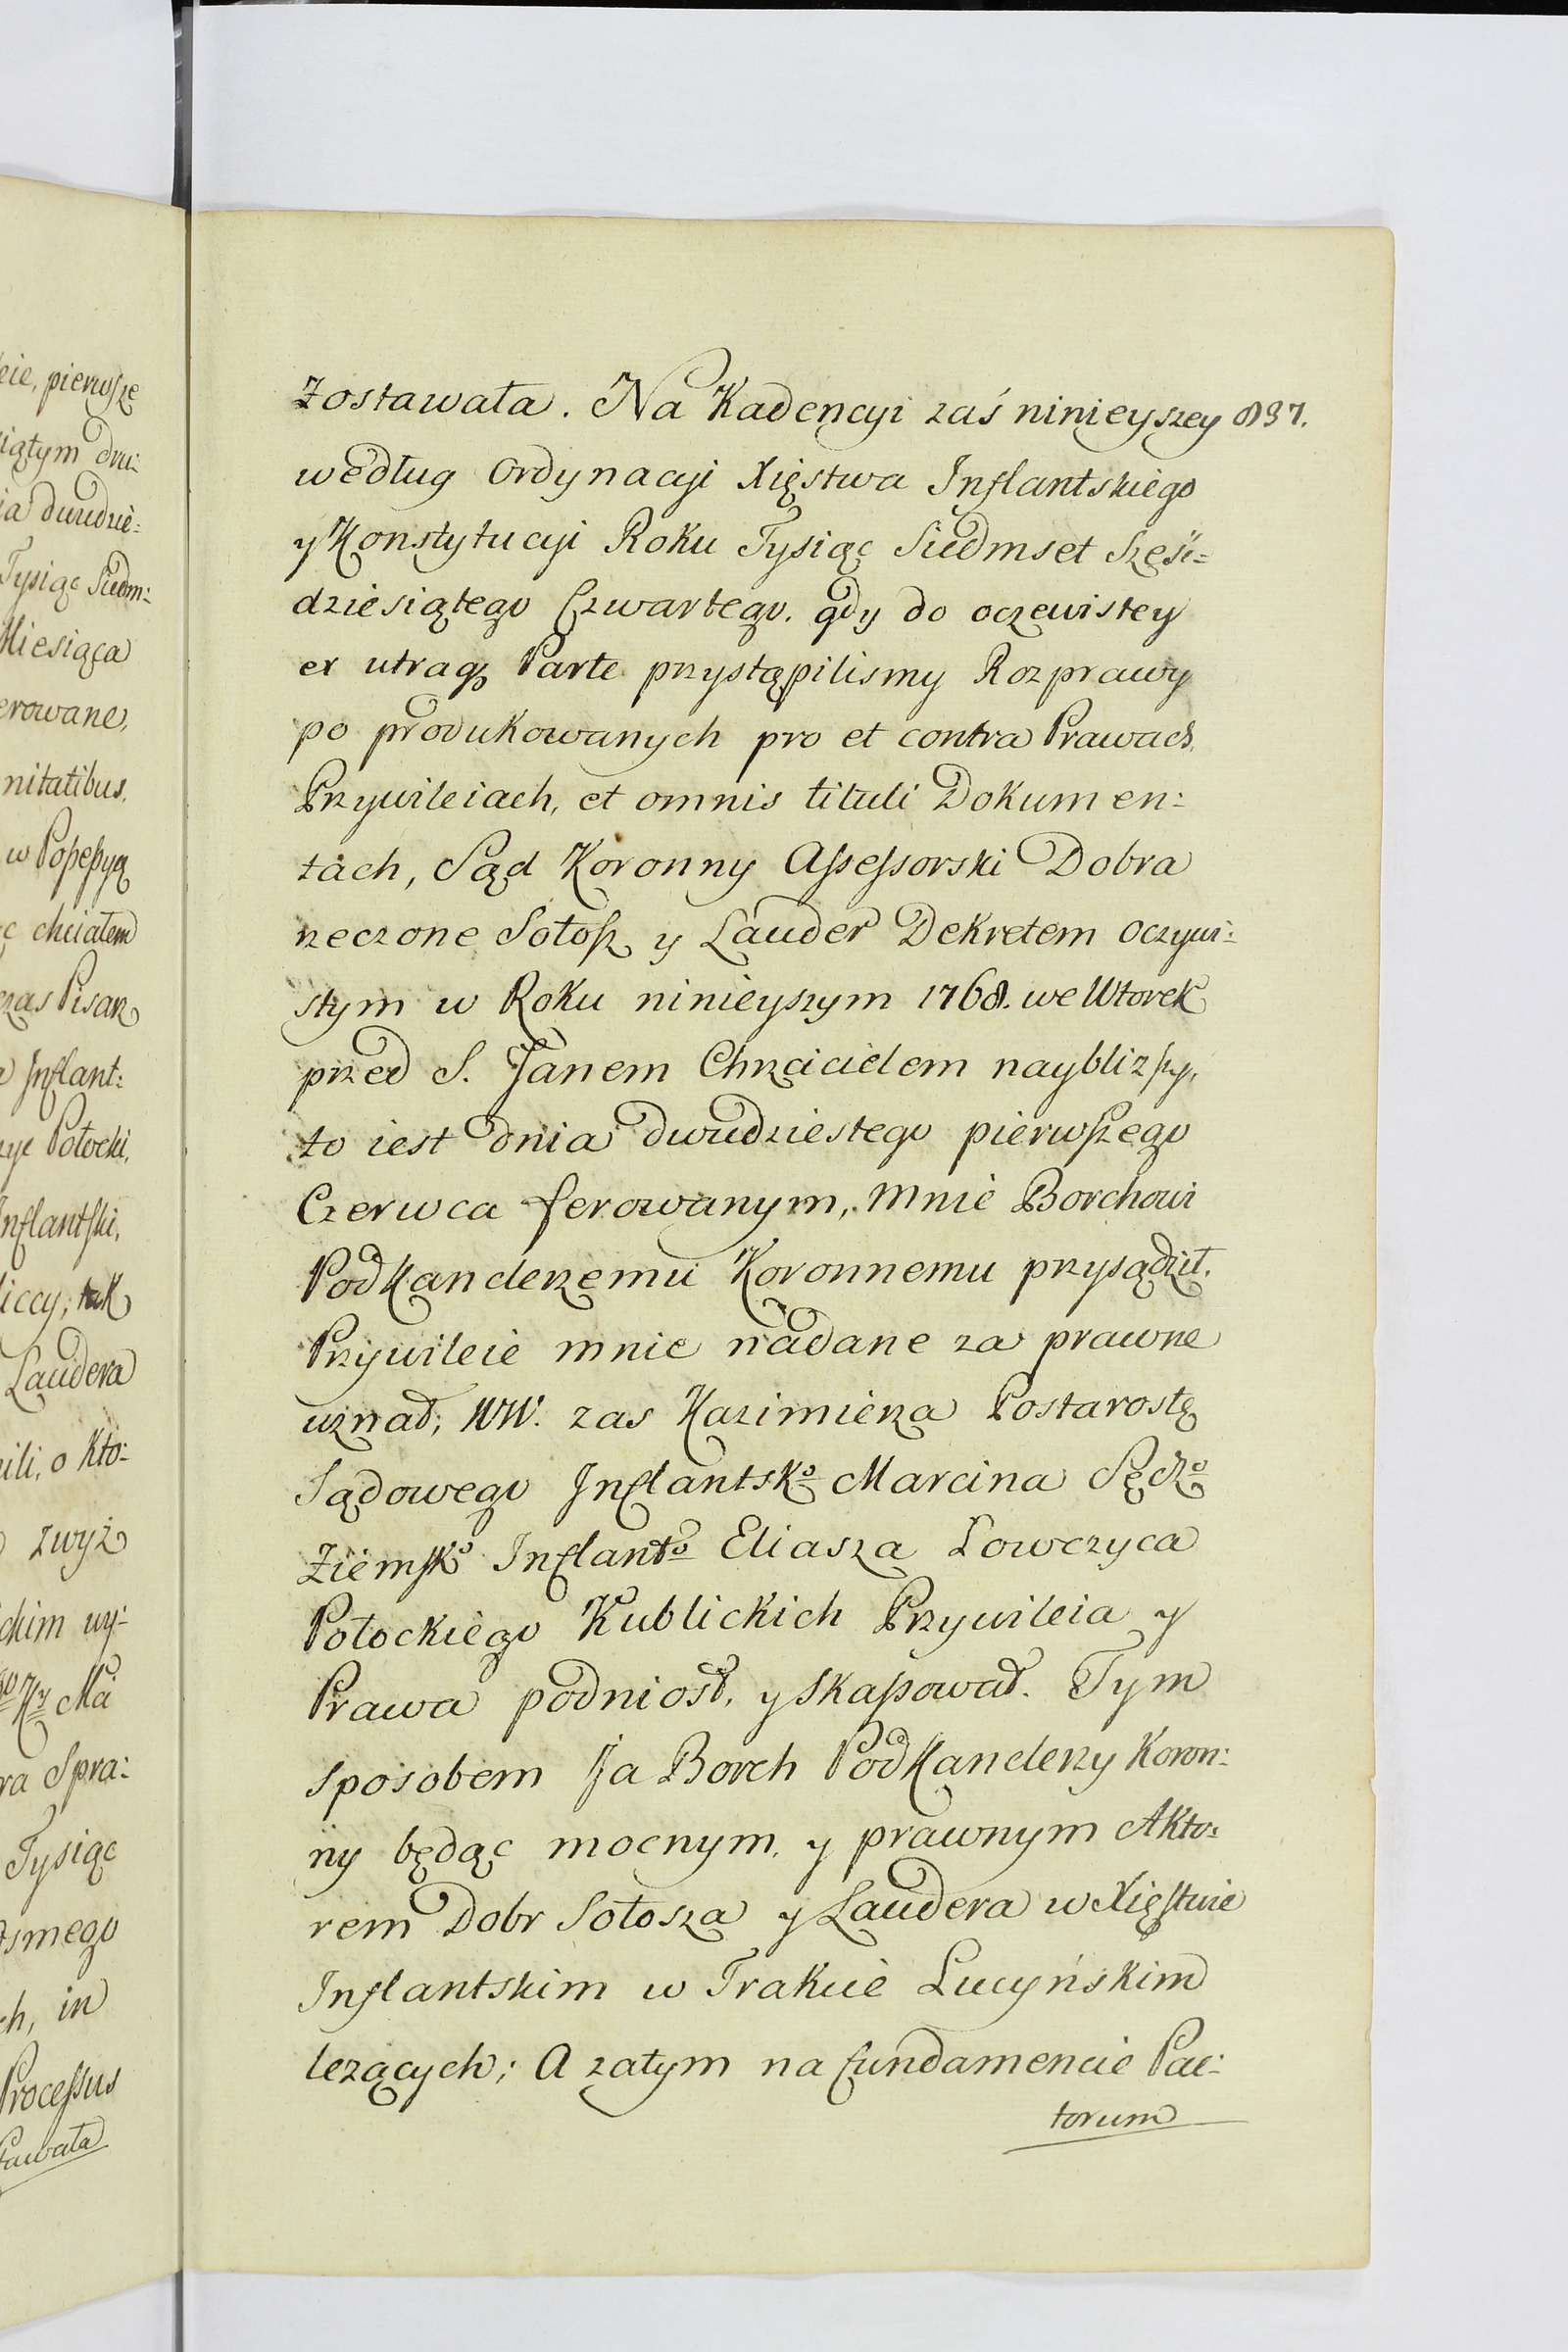 eie, pierwsze
iątym dru:
ia dwudzie=
Tysiąc Siedm:
Miesiąca
erowane,
nitatibus,
w Possessyą
ć chciałem
czas Pisarz
Inflant:
Połocki,
Inflantski,
liccy; tak
Laudera
ili, o kto:
zwyż
ckim wy-
Ma
ra Spra:
Tysiąc
osmego
ch, in
Processus
stawała
zostawała. Na Kadencyi zaś ninieyszey 837.
według Ordynacyi Xięstwa Inflantskiego
y Konstytucyi Roku Tysiąc Siedmset Sześć=
dziesiątego Czwartego. gdy do oczewistey
ex utraq3 Parte przystąpilismy Rozprawy
po produkowanych pro et contra Prawach,
Przywileiach, et omnis tituli Dokumen:
tach, Sąd Koronny Assessorski Dobra
rzeczone Sołosz y Lauder Dekretem Oczywi:
stym w Roku ninieyszym 1768. we Wtorek
przed S. Janem Chrzcicielem nayblizszy,
to iest dnia dwudziestego pierwszego
Czerwca ferowanym, mnie Borchowi
Podkanclerzemu Koronnemu przysądził.
Przywileie mnie nadane za prawne
uznał; WW. zas Kazimierza Postarostę
Sądowego Inflantsko Marcina Sędzo
Ziemsko Inflanto Eliasza Łowczyca
Połockiego Kublickich Przywileia y
Prawa podniosł, y skassował. Tym
sposobem Ja Borch Podkanclerzy Koron:
ny będąc mocnym, y prawnym Akto:
rem Dobr Sołosza y Laudera w Xięstwie
Inflantskim w Trakcie Lucyńskim
lezących; A zatym na fundamencie Pac:
torum